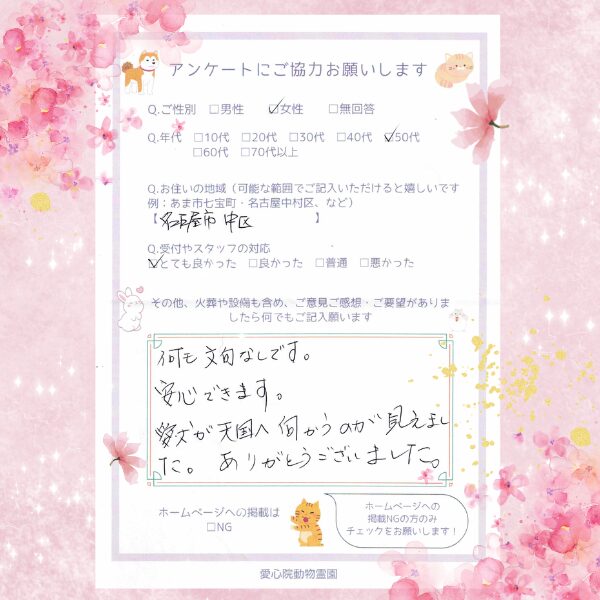 アンケートにご協力お願いします
Q.ご性別 □男性 ☑女性 □無回答
Q.年代 □10代 □20代 □30代 □40代 ☑50代
□60代 □70代以上
Q.お住いの地域（可能な範囲でご記入いただけると嬉しいです
例：あま市七宝町・名古屋中村区、など）
【名古屋市 中区 】
Q.受付やスタッフの対応
☑とても良かった □良かった □普通 □悪かった
その他、火葬や設備も含め、ご意見ご感想・ご要望がありま
したら何でもご記入願います
何も文句なしです。
安心できます。
愛犬が天国へ向かうのが見えまし
た。ありがとうございました。
ホームページへの掲載は
□NG
ホームページへの
掲載NGの方のみ
チェックをお願いします！
愛心院動物霊園